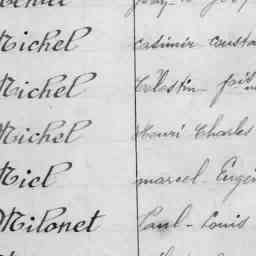 Michel casimir
Michel Célestin
Michel Henri Charles
Miel marcel Eugè
Milonet Paul-Louis